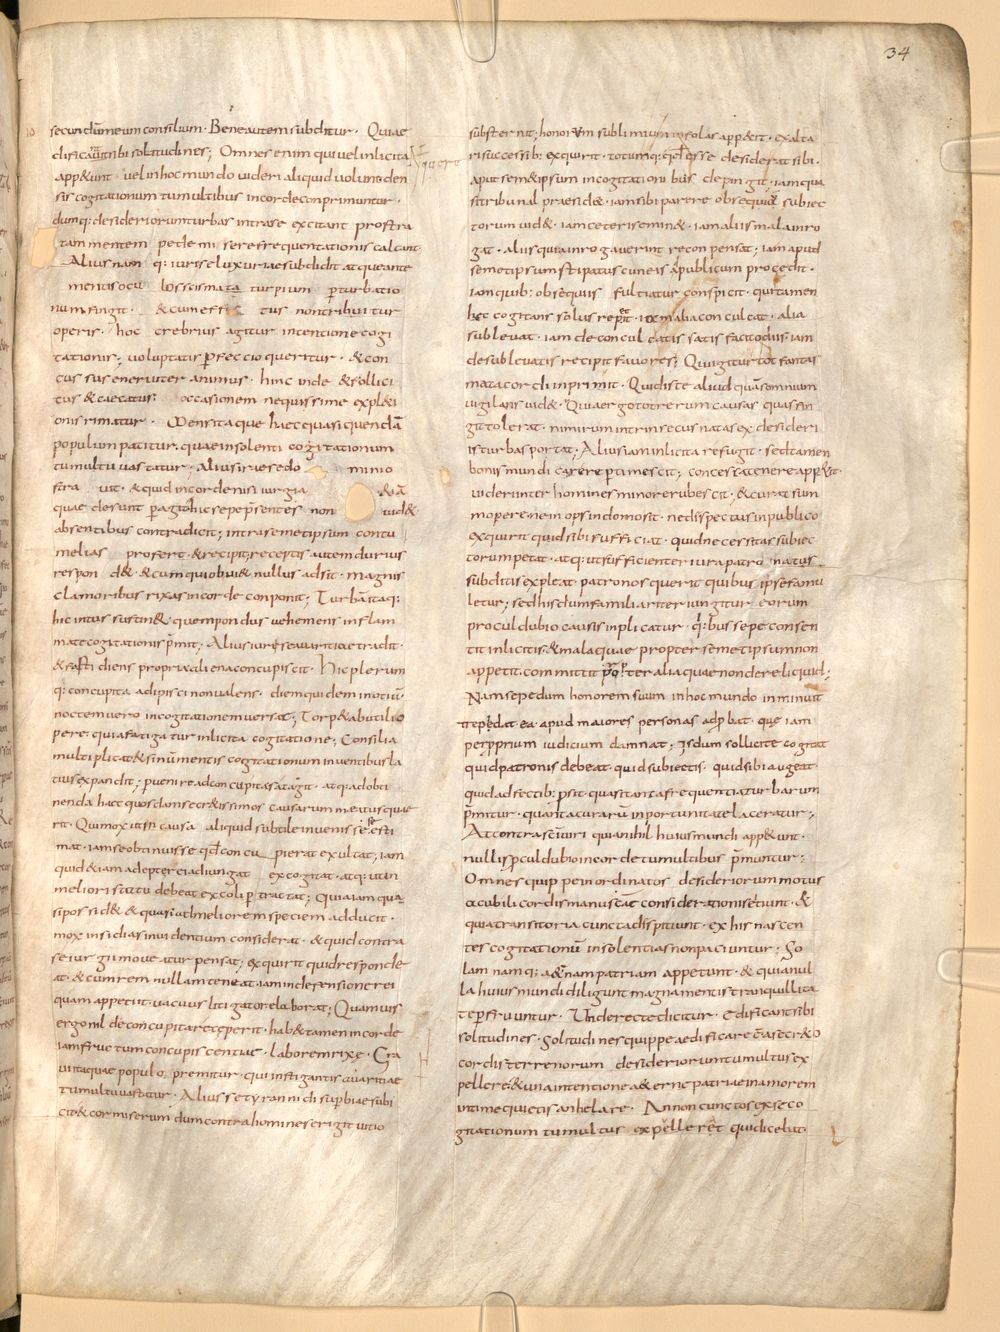 34
secundū meum consilium · Bene autem subditur · Qui ae
dificant sibi solitudines; Omnes enim qui vel inlicita
app&unt · vel in hoc mundo videri aliquid volunt · den
sis cogitationum tumultibus in corde conprimuntur ·
dumq: desideriorum turbas intra se excitant prostra
tam mentem pede miserę frequentationis calcant ·
Alius namq: iuri se luxuriae subdidit atque ante
mentis oculos scismata turpium perturbatio
num fingit · & cum effectus non tribuitur
operis · hoc crebrius agitur intentione cogi
tationis; voluptatis perfectio queritur · & con
cussus eneruiter animus · hinc inde & sollici
tus & caecatus; occasionem nequissime expl&i
onis rimatur · Mens itaque haec quasi quendā
populum patitur · quae insolenti cogitationum
tumultu vastatur · Alius ire se do minio
stra vit · & quid in corde nisi iurgia &iā
quae desunt peragit · hic sepe p̄sentes non vid&
absentibus contradicit; intra semetipsum contu
melias profert & recipit; receptis autem durius
respond& · & cum qui obvi& nullus adsit · magnis
clamoribus rixas in corde conponit; Turbā itaq:
hic intus sustin& quem pondus vehemens inflam
mate cogitationis p̄mit; Alius iuri se avaritiae tradit ·
& fastidiens propria aliena concupiscit · Hic plerum
q: concupita adipisci non valens · diem quidem in otiū ·
noctem vero in cogitationem versat; Torp& ab utili o
pere · quia fatigatur inlicita cogitatione; Consilia
multiplicat & sinū mentis cogitationum inventibus la
tius expandit; pervenire ad concupita satagit · atq: ad obti
nenda haec quosdam secr&issimos causarum meatus quae
rit · Qui mox ut in causa aliquid subtile invenisse se esti
mat · iam se obtinuisse qd concupierat exultat; iam
quid &iam adeptę rei adiungat excogitat · atq: ut in
meliori statu debeat excoli pertractat; Quia iam qua
si possid& & quasi ad meliorem speciem adducit ·
mox insidias invidentium considerat · & quid contra
se iurgii moveatur pensat; exquirit quid responde
at · & cum rem nullam teneat · iam in defensione rei
quam appetit · vacuus litigator elaborat; Quamvis
ergo nil de concupita re ceperit · hab& tamen in corde
iam fructum concupiscentiae · laborem rixę · Gra
vi itaque populo premitur · qui instigantis avaritiae
tumultu vastatur · Alius se tyrannidi superbiae subi
cit & cor miserum dum contra homines erigit · vitio
substernit; honorum sublimium infolas app&it · exalta
ri successib: exquirit · totumq: qd esse desiderat · sibi ·
aput sem&ipsum in cogitationibus depingit · iam qua
si tribunal praesid& · iam sibi parere obsequia subiec
torum vid& · iam ceteris emin& · iam aliis mala inro
gat · aliis quia inrogaverint recompensat; iam apud
semetipsum stipatus cuneis ad publicum procedit ·
iam quib: obsequiis fultiatur conspicit · qui tamen
hęc cogitans solus repit · iam alia conculcat · alia
sublevat · iam de conculcatis satisfacit odiis · iam
de sublevatis recipit favores; Qui igitur tot fantas
mata cordi inprimit · Quid iste aliud quam somnium
vigilans vid& · Qui ergo tot rerum causas quas fin
git tolerat · nimirum intrinsecus natas ex desideri
is turbas portat; Alius iam inlicita refugit · sed tamen
bonis mundi carere pertimescit; concessa tenere app&it ·
videri inter homines minor erubescit · & curat sum
mopere ne inops in domo sit · ne dispectus in publico
exquirit quid sibi sufficiat · quid necessitas subiec
torum petat · atq: ut sufficienter iura patronatus
subditis expleat · patronos querit quibus ipse famu
letur; sed his dum familiariter iungitur eorum
procul dubio causis inplicatur · q: bus sepe consen
tit inlicitis & mala quae propter semetipsum non
appetit · committit propter alia quae non dereliquid;
Nam sepe dum honorem suum in hoc mundo inminui
trepedat · ea apud maiores personas adprobat · que iam
per proprium iudicium damnat; Is dum sollicite cogitat
quid patronis debeat · quid subiectis · quid sibi augeat ·
quid adfectib: prosit · quasi tanta frequentia turbarum
p̄mitur · quanta curarū inportunitate laceratur;
At contra sc̄i viri quia nihil huius mundi app&unt ·
nullis procul dubio in corde tumultibus p̄muntur;
Omnes quippe inordinatos desideriorum motus
a cubili cordis manu scāe considerationis eiciunt · &
quia transitoria cuncta dispitiunt · ex his nascen
tes cogitationū insolentias non paciuntur; So
lam namq: a&nam patriam appetunt · & quia nul
la huius mundi diligunt magna mentis tranquillita
te perfruuntur · Unde recte dicitur · edificant sibi
solitudines · Solitudines quippe aedificare ē a secr&o
cordis terrenorum desideriorum tumultus ex
pellere & una intentione a&ernę patriae in amorem
intime quietis anhelare · An non cunctos ex se co
gitationum tumultus expellerēt qui dicebat